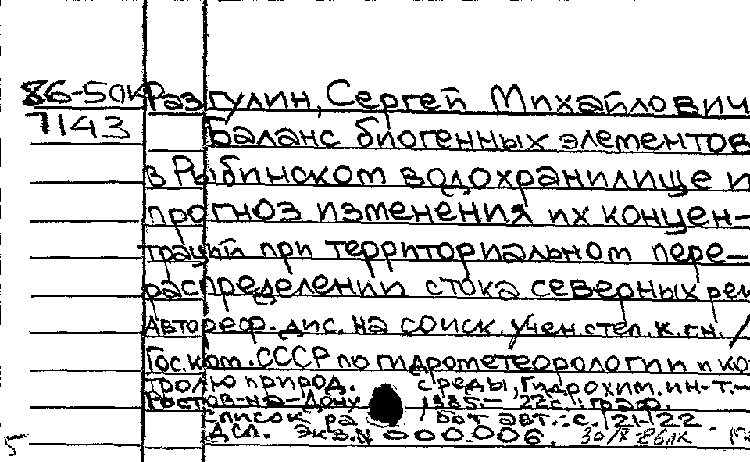 86-50к Разгулин, Сергей Михайлович
7143 Баланс биогенных элементов
в Рыбинском водохранилище и
прогноз изменения их концен-
траций при территориальном пере-
распределении стока северных рек
Автореф. дис. на соиск. учен. степ. к. г. н. /
Гос. ком. СССР по гидрометеорологии и ко
тролю природ. среды, Гидрохим. ин-т. -
Ростов-на-Дону, 1985. - 22 с.: граф.
список ра бот авт.: с. 21-22.
ДСП. Экз. N 000.006.
5